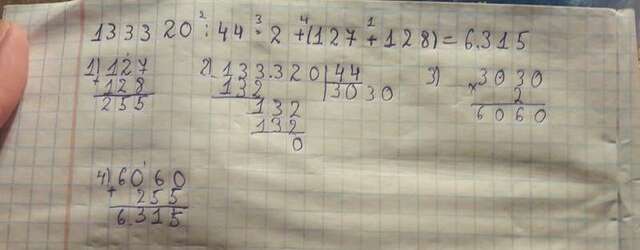 133320 : 44 · 2 + (127 + 128) = 6.315
2 3 4 1
1) 127
+ 128
255
2) 133.320 | 44
132 3030
132
132
0
3) 3030
× 2
6060
4) 6060
+ 255
6.315